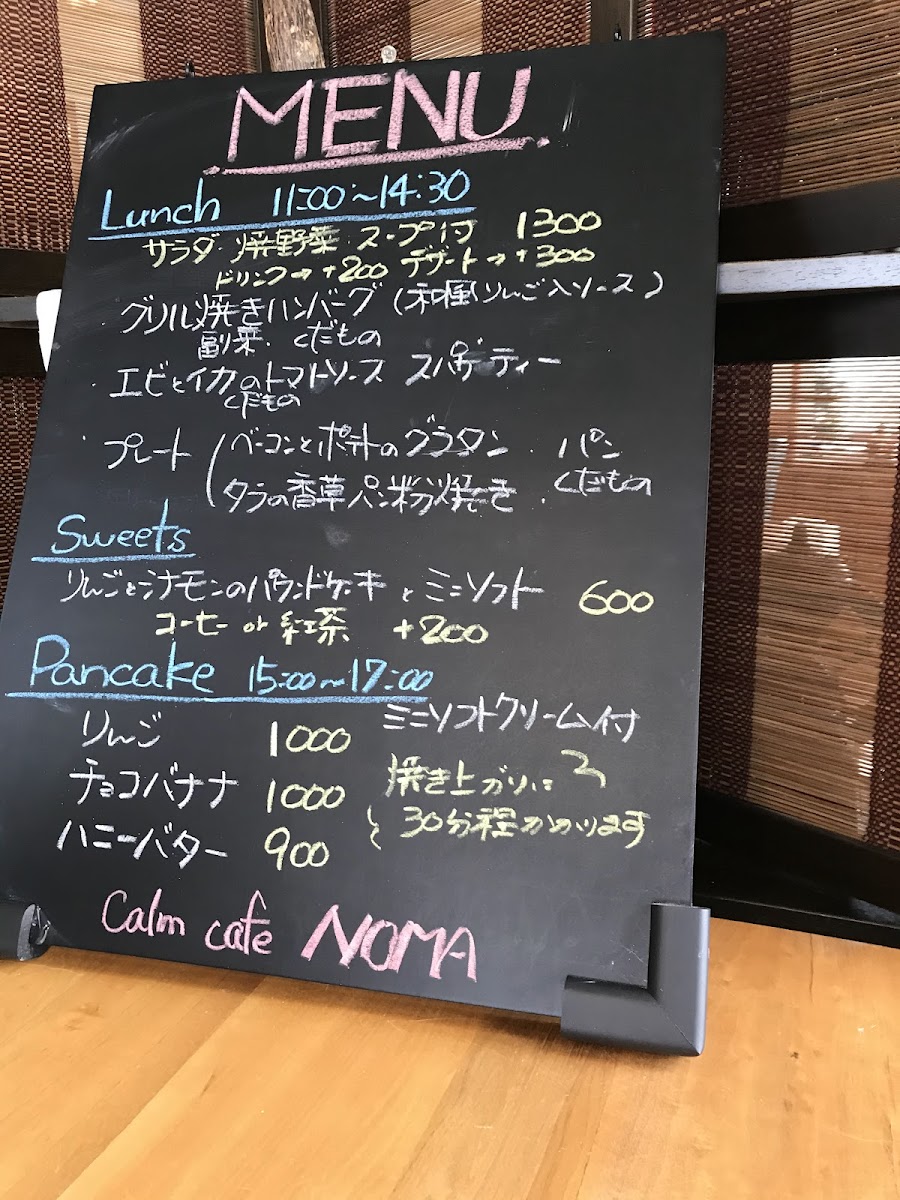 MENU
Lunch 11:00~14:30
サラダ・焼野菜・スープ付 1300
ドリンク→+200 デザート→+300
・グリル焼きハンバーグ(和風りんご入ソース)
副菜・くだもの
・エビとイカのトマトソース スパゲティー
くだもの
・プレート(ベーコンとポテトのグラタン ・パン
タラの香草パン粉焼き ・くだもの
Sweets
りんごとシナモンのパウンドケーキとミニソフト 600
コーヒー or 紅茶 +200
Pancake 15:00~17:00
りんご 1000 ミニソフトクリーム付
チョコバナナ 1000 焼き上がりに
ハニーバター 900 30分程かかります
Calm cafe NOMA